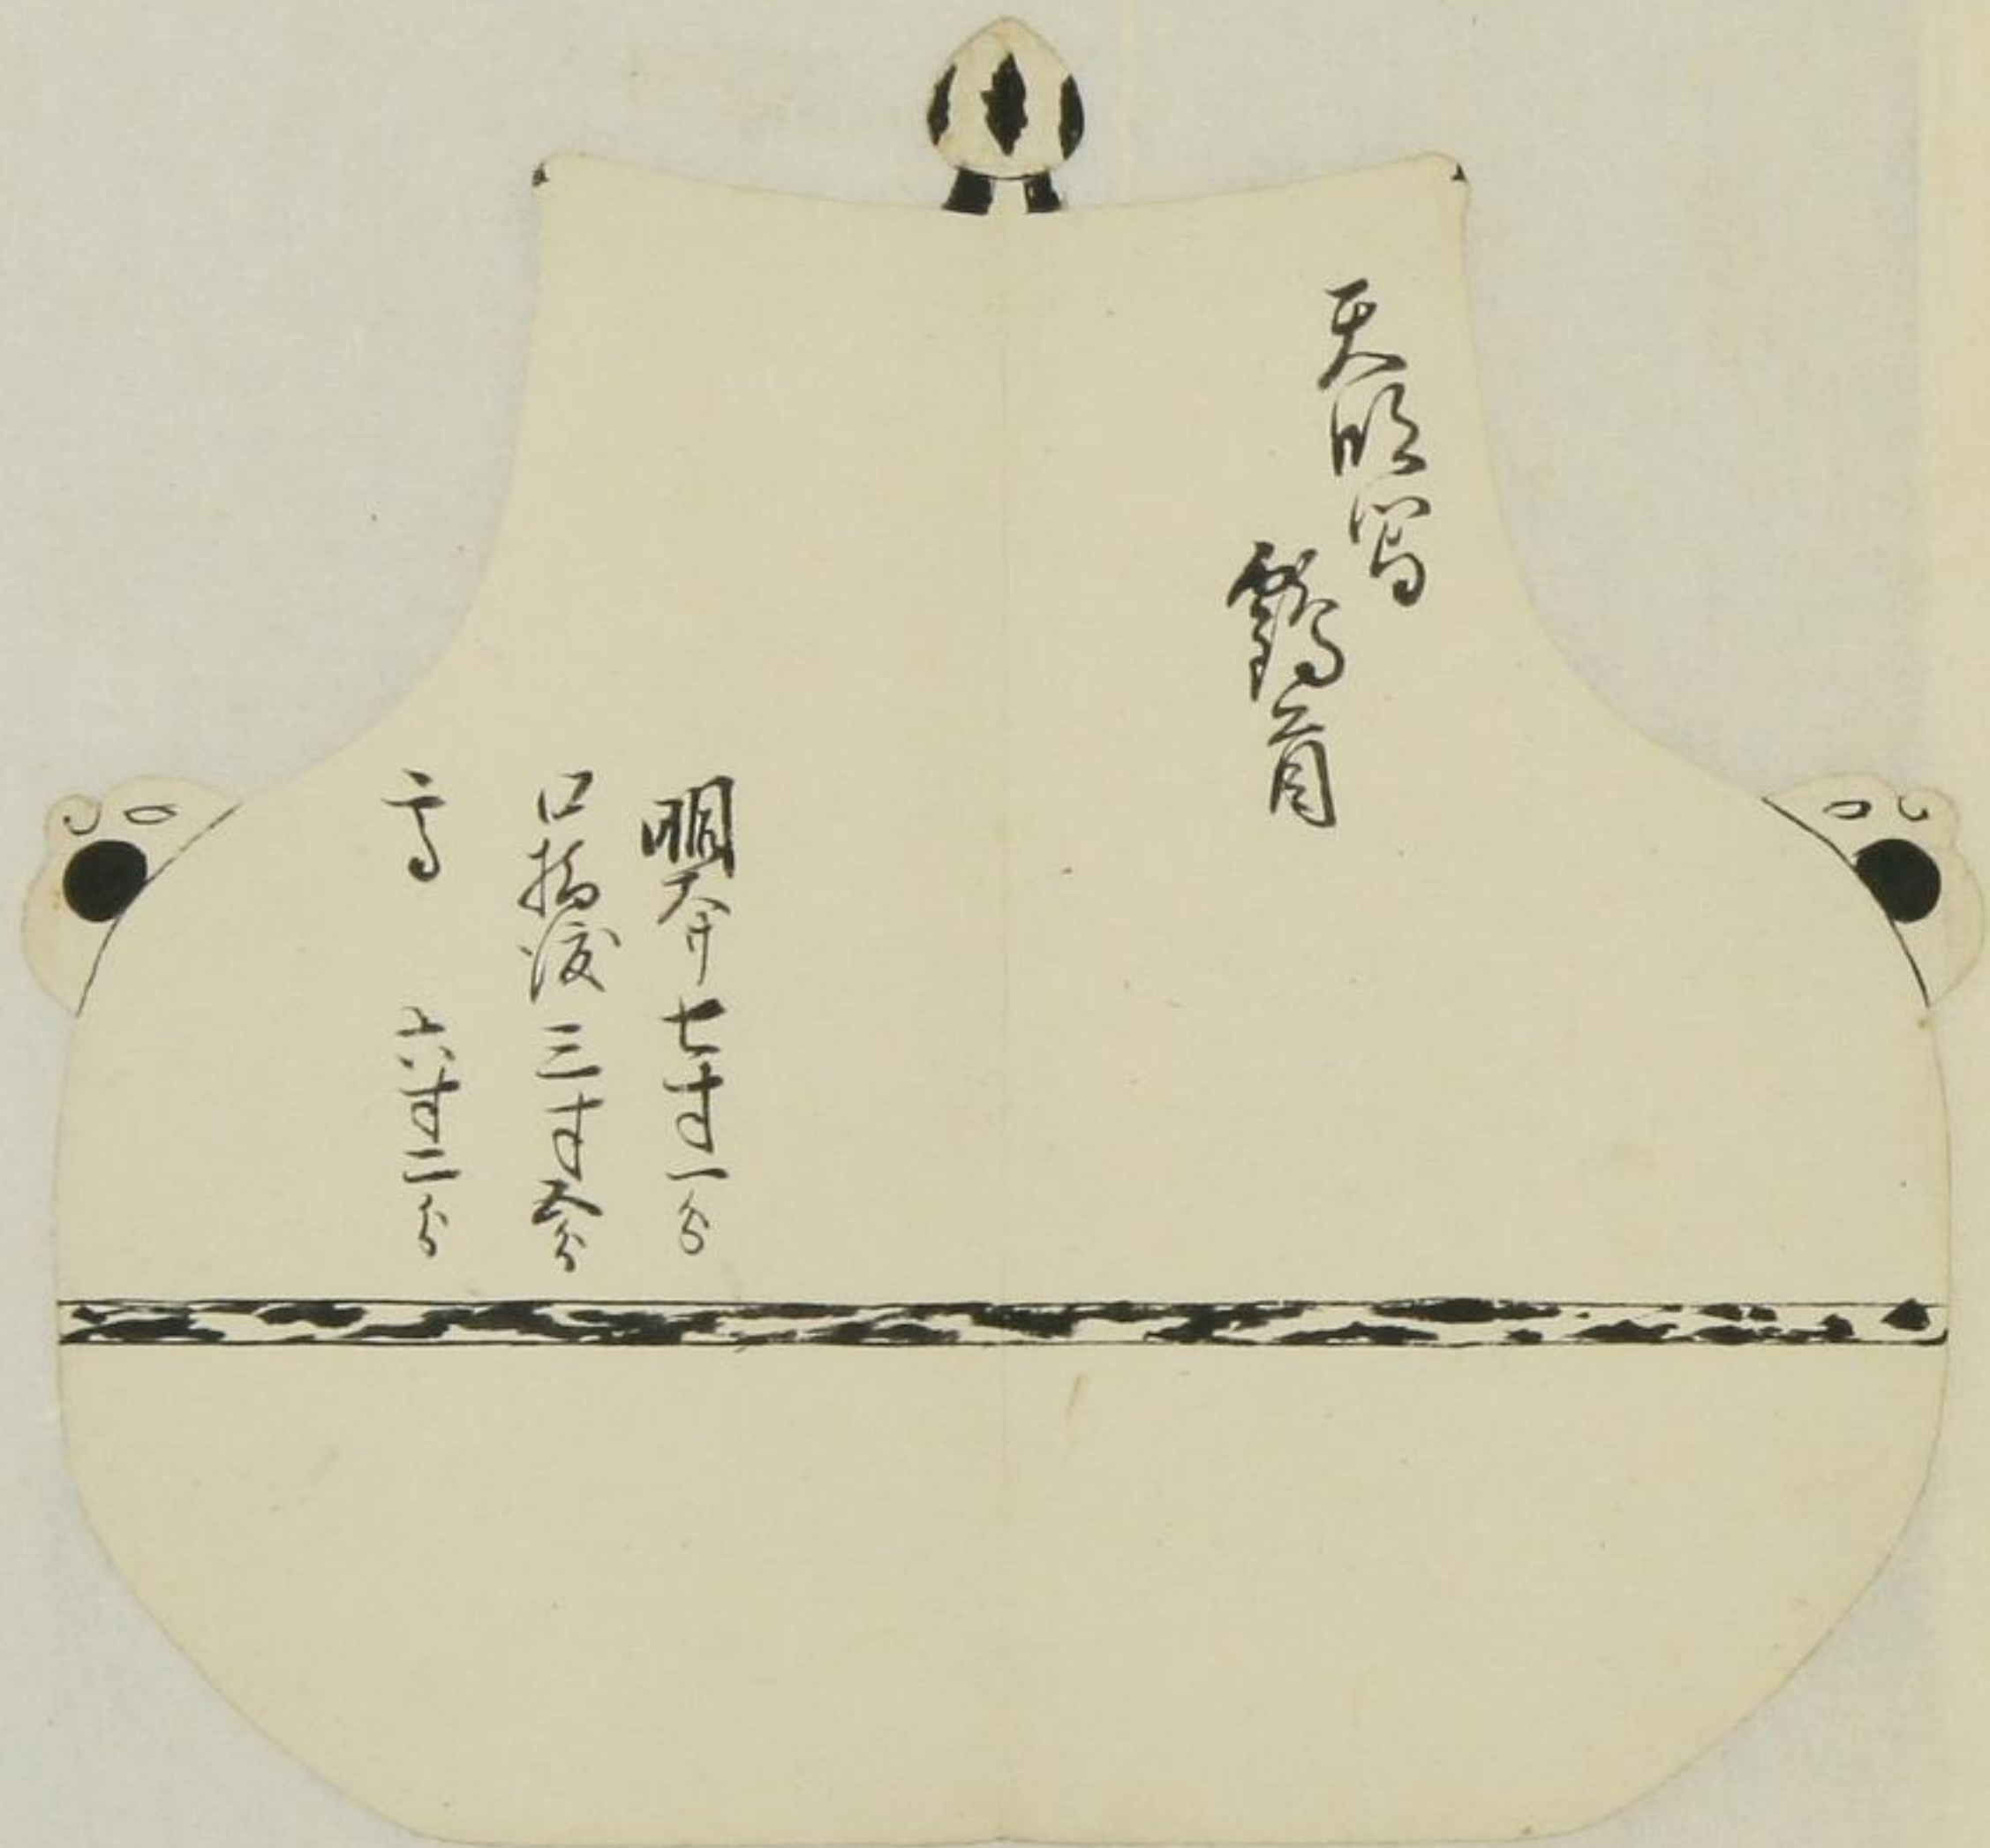 天明寫
鶴首
胴大サ七寸一分
口指渡三寸五分
高 六寸二分